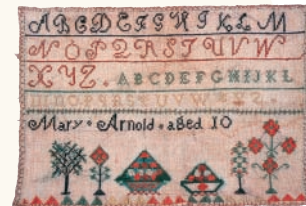 ABCDEFGHIKLM
NOPQRSTUVW
XYZ. ABCDEFGHIJKL
Mary • Arnold • aged 10